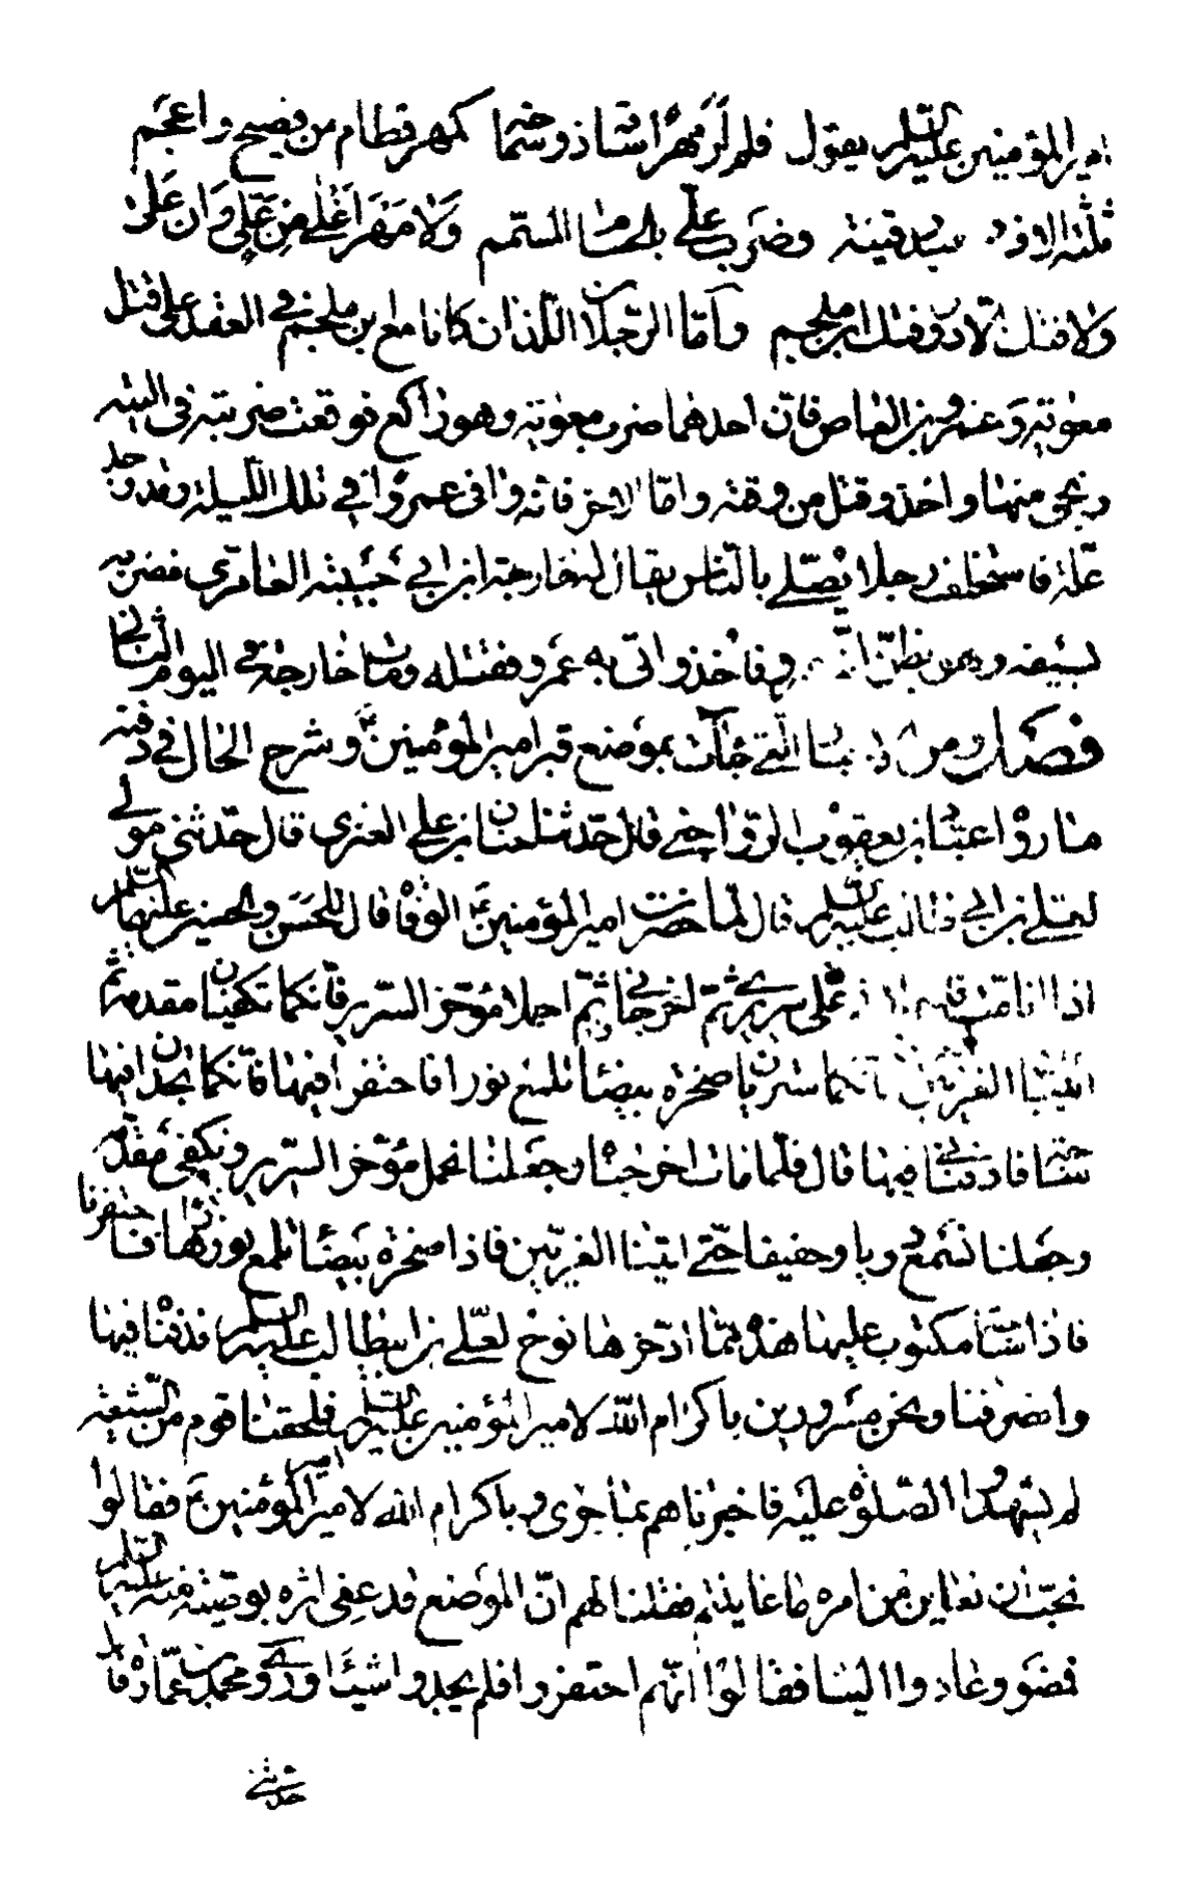 امير المؤمنين عليه السلم يقول فلم أر مهرا ساقه ذو سماحة كمهر قطام من فصيح واعجم
ثلثة الاف و وقينة وضرب علي بالحسام المسمم ولا مهر اغلى من علي وان علا
ولا قتل الا دون قتل ابن ملجم وأما الرجلان اللذان كانا مع ابن ملجم في العقد على قتل
معوية وعمرو بن العاص فان احدهما ضرب معوية وهو راكع فوقعت ضربته في اليته
ونجى منها واخذ وقتل من وقته واما الاخر فانه وافى عمروا في تلك الليلة وقد وجد
علة فاستخلف رجلا يصلي بالناس يقال له خارجة ابن ابي حبيبة العامري فضربه
بسيفه وهو يظن انه فاخذ واتى به عمرو فقتله ومات خارجة في اليوم الثاني
فصل ومن التي جاءت بموضع قبر امير المؤمنين ع وشرح الحال في دفنه
ما رواه عباد بن يعقوب الرواجني قال حدثنا حبان بن علي العنزي قال حدثني مولى
لعلي بن ابي طالب عليه السلم قال لما حضرت امير المؤمنين ع الوفاة قال للحسن والحسين عليهما السلم
اذا انا مت على سريري ثم اخرجاني ثم احملا مؤخر السرير فانكما تكفيان مقدمه ثم
ائتيا الغريين فانكما ستريان صخرة بيضا تلمع نورا فاحتفرا فيها فانكما تجدان فيها
ساجة فادفناني فيها قال فلما مات اخرجناه وجعلنا نحمل مؤخر السرير ونكفى مقدمه
وجعلنا نسمع دويا وحفيفا حتى اتينا الغريين فاذا صخرة بيضا تلمع نورها فاحتفرنا
فاذا ساجة مكتوب عليها هذه مما ادخرها نوح لعلي بن ابيطالب عليه السلم فدفناه فيها
وانصرفنا ونحن مسرورين باكرام الله لامير المؤمنين عليه السلم فلحقنا قوم من الشيعة
لم يشهدوا الصلوة عليه فاخبرناهم بما جرى وباكرام الله لامير المؤمنين ع فقالوا
نحب ان نعاين من امره ما عاينتم فقلنا لهم ان الموضع قد عفى اثره بوصية منه عليه السلم
فمضو وعادوا الينا فقالوا انهم احتفروا فلم يجدوا شيئا وروى محمد بن عمارة قال
حدثني